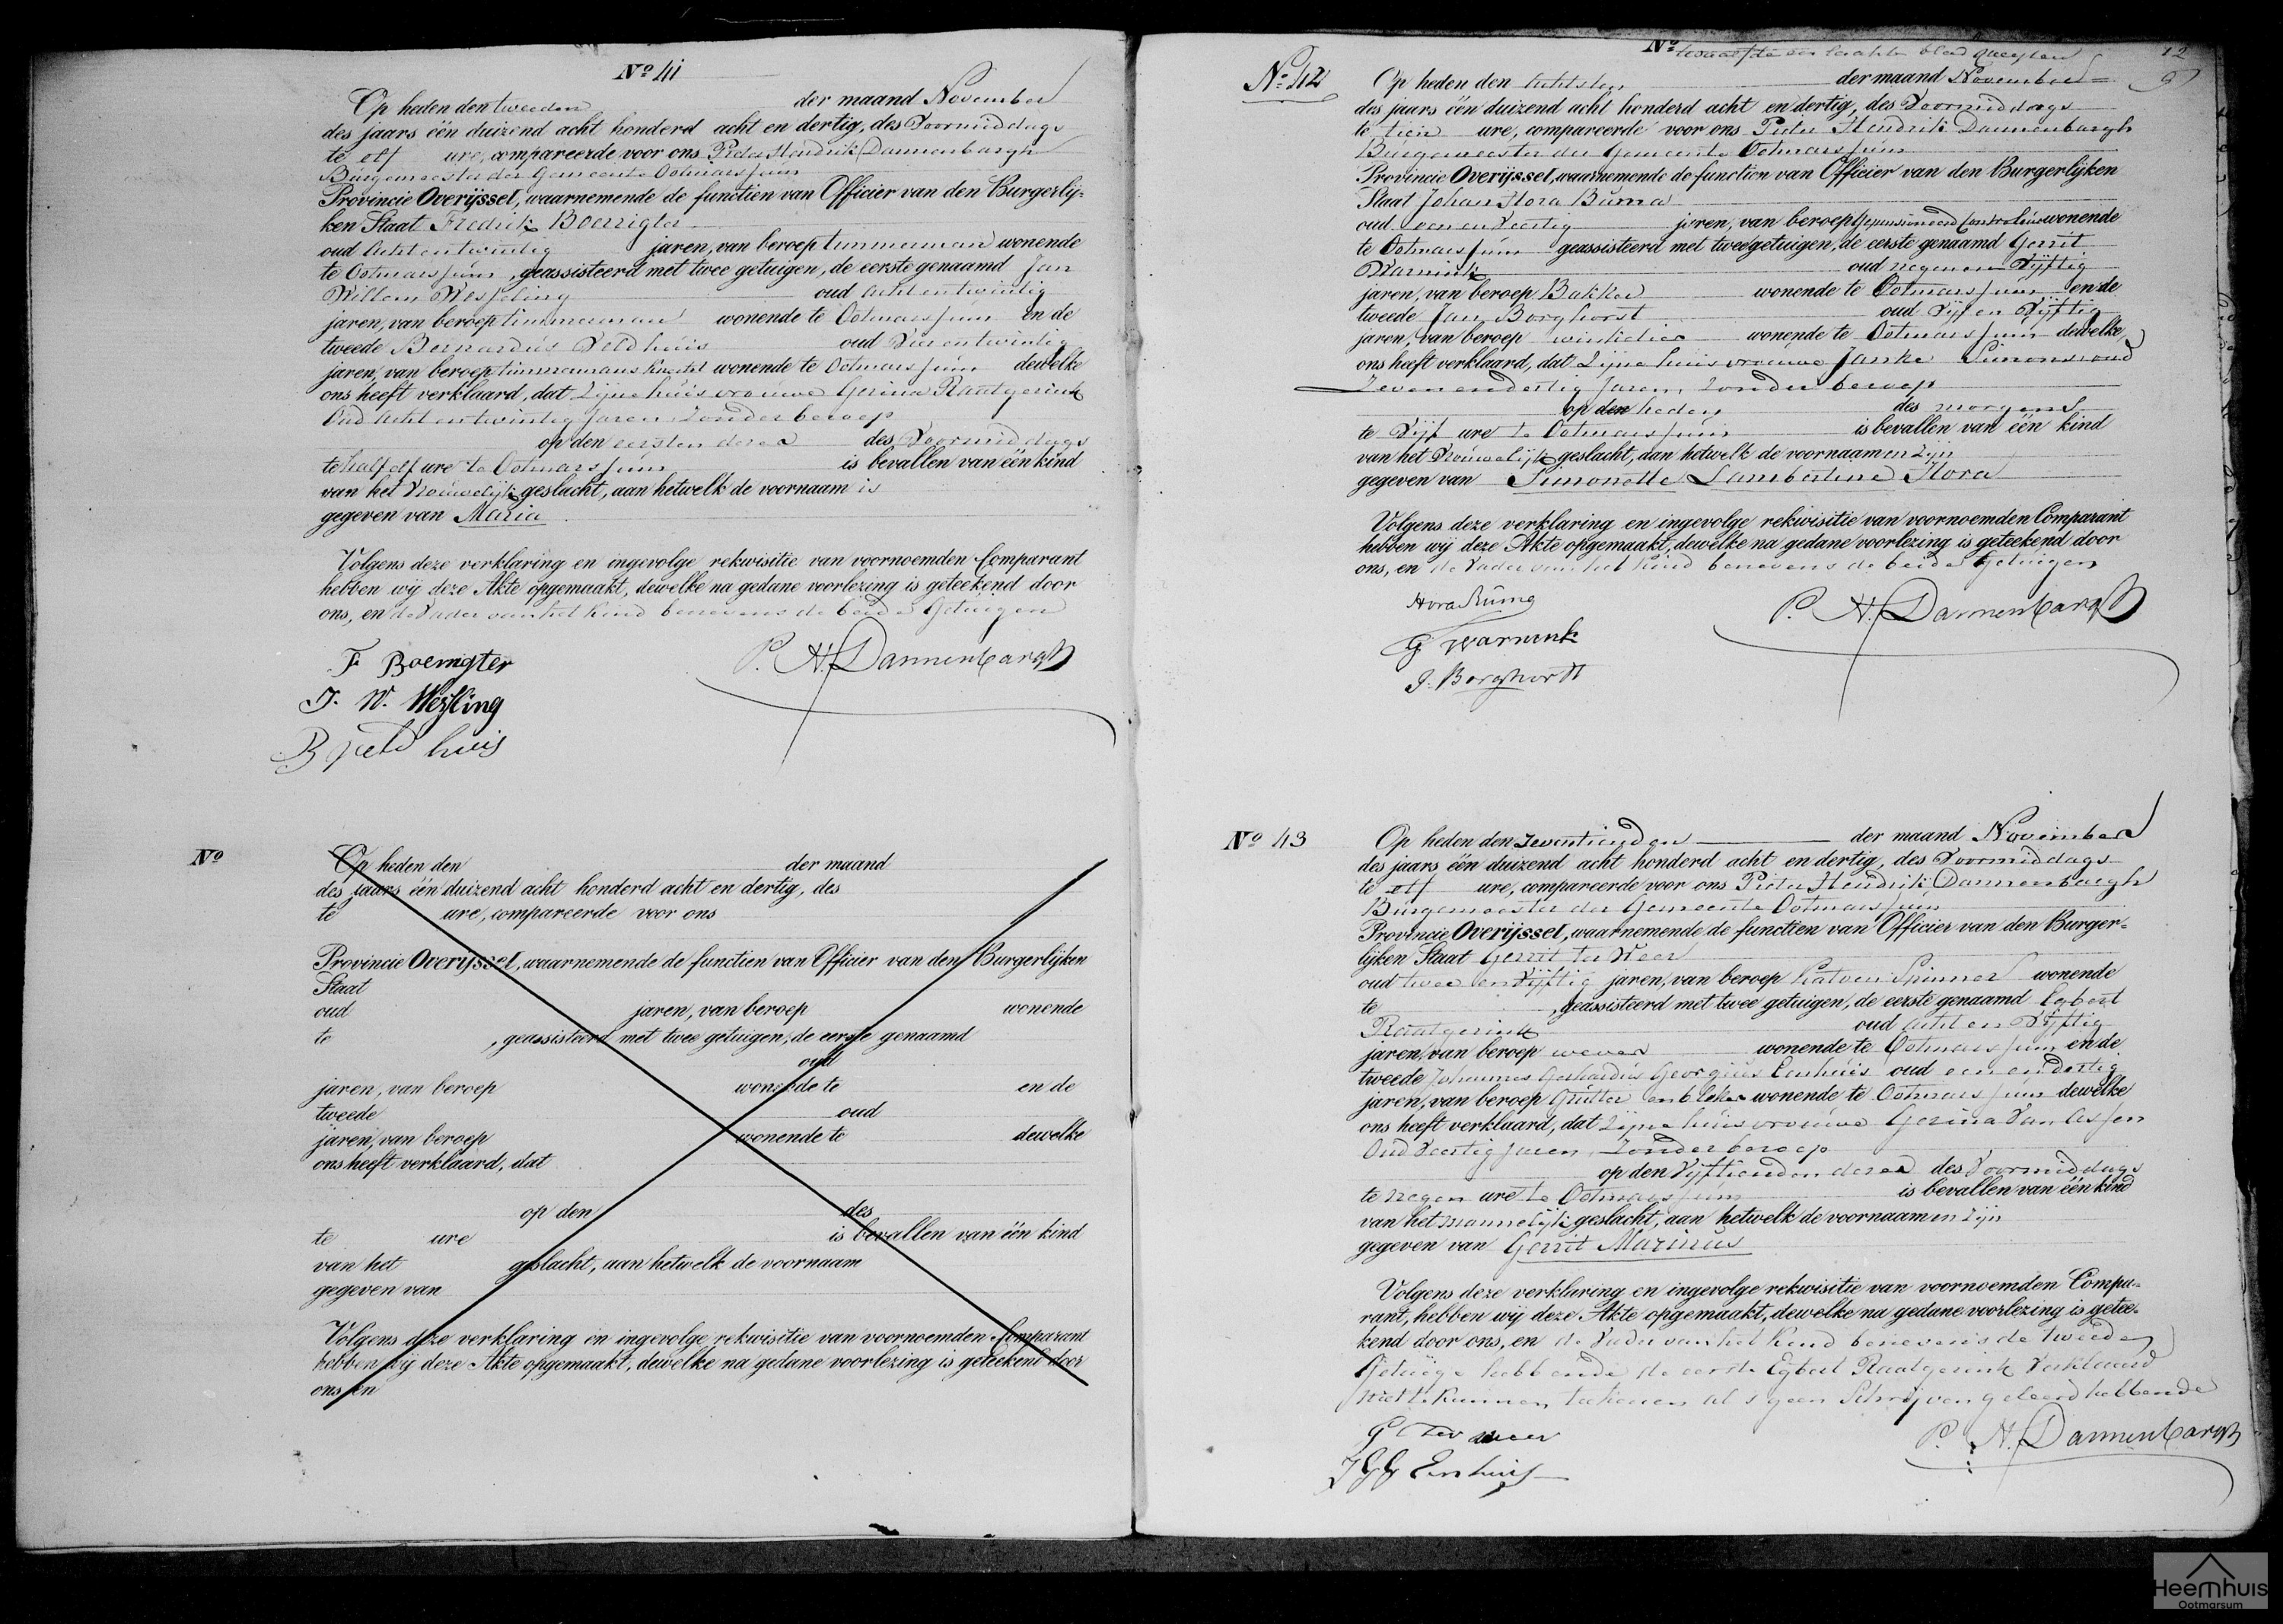 No 41
Op heden den tweeden der maand November
des jaars één duizend acht honderd acht en dertig, des Voormiddags
te elf ure, compareerde voor ons Pieter Hendrik Dannenbargh
Burgemeester der Gemeente Ootmarssum
Provincie Overijssel, waarnemende de functien van Officier van den Burgerlij-
ken Staat Fredrik Boerrigter
oud acht en twintig jaren, van beroep timmerman wonende
te Ootmarssum, geassisteerd met twee getuigen, de eerste genaamd Jan
Willem Wesseling oud acht en twintig
jaren, van beroep timmerman wonende te Ootmarssum en de
tweede Bernardus Veldhuis oud Vier en twintig
jaren, van beroep timmermans knecht wonende te Ootmarssum dewelke
ons heeft verklaard, dat Zijne huisvrouwe Gerina Raatgerink
Oud acht en twintig Jaren, Zonder beroep
op den eersten dezer des Voormiddags
te half elf ure te Ootmarssum is bevallen van één kind
van het Vrouwelijk geslacht, aan hetwelk de voornaam is
gegeven van Maria
Volgens deze verklaring en ingevolge rekwisitie van voornoemden Comparant
hebben wij deze Akte opgemaakt, dewelke na gedane voorlezing is geteekend door
ons, en de Vader van het Kind benevens de beide Getuigen
F Boerrigter
P. H. Dannenbargh
J. W. Wesseling
B Veldhuis
No
Op heden den der maand
des jaars één duizend acht honderd acht en dertig, des
te ure, compareerde voor ons
Provincie Overijssel, waarnemende de functien van Officier van den Burgerlijken
Staat
oud jaren, van beroep wonende
te , geassisteerd met twee getuigen, de eerste genaamd
oud
jaren, van beroep wonende te en de
tweede oud
jaren, van beroep wonende te dewelke
ons heeft verklaard, dat
op den des
te ure is bevallen van één kind
van het geslacht, aan hetwelk de voornaam
gegeven van
Volgens deze verklaring en ingevolge rekwisitie van voornoemden Comparant
hebben wij deze Akte opgemaakt, dewelke na gedane voorlezing is geteekend door
ons, en
No twaalfde en laatste blad 12
No 42
Op heden den Achtsten der maand November
des jaars één duizend acht honderd acht en dertig, des Voormiddags
te tien ure, compareerde voor ons Pieter Hendrik Dannenbargh
Burgemeester der Gemeente Ootmarssum
Provincie Overijssel, waarnemende de functien van Officier van den Burgerlijken
Staat Johan Hora Buma
oud een en Veertig jaren, van beroep Gepensioneerd Controleur wonende
te Ootmarssum geassisteerd met twee getuigen, de eerste genaamd Gerrit
Warnink oud negen en Vijftig
jaren, van beroep Bakker wonende te Ootmarssum en de
tweede Jan Borghorst oud Vijf en Vijftig
jaren, van beroep winkelier wonende te Ootmarssum dewelke
ons heeft verklaard, dat Zijne huisvrouwe Janke Simons oud
Zeven en dertig Jaren, Zonder beroep
op den heden des morgens
te Vijf ure te Ootmarssum is bevallen van één kind
van het Vrouwelijk geslacht, aan hetwelk de voornaamen Zijn
gegeven van Simonette Lambertine Hora
Volgens deze verklaring en ingevolge rekwisitie van voornoemden Comparant
hebben wij deze Akte opgemaakt, dewelke na gedane voorlezing is geteekend door
ons, en de Vader van het Kind benevens de beide Getuigen
Hora Buma
P. H. Dannenbargh
G Warnink
J. Borghorst
No 43
Op heden den Zeventienden der maand November
des jaars één duizend acht honderd acht en dertig, des Voormiddags
te elf ure, compareerde voor ons Pieter Hendrik Dannenbargh
Burgemeester der Gemeente Ootmarssum
Provincie Overijssel, waarnemende de functien van Officier van den Burger-
lijken Staat Gerrit ter Weer
oud twee en Vijftig jaren, van beroep Katoen Spinner wonende
te , geassisteerd met twee getuigen, de eerste genaamd Egbert
Raatgerink oud acht en Vijftig
jaren, van beroep wever wonende te Ootmarssum en de
tweede Johannes Gerhardus Georgius Eenhuis oud een en dertig
jaren, van beroep Grutter en bleker wonende te Ootmarssum dewelke
ons heeft verklaard, dat Zijne huisvrouwe Gerina Van Assen
Oud Veertig Jaren, Zonder beroep
op den Vijftienden dezer des Voormiddags
te negen ure te Ootmarssum is bevallen van één kind
van het mannelijk geslacht, aan hetwelk de voornaamen Zijn
gegeven van Gerrit Marinus
Volgens deze verklaring en ingevolge rekwisitie van voornoemden Compa-
rant, hebben wij deze Akte opgemaakt, dewelke na gedane voorlezing is getee-
kend door ons, en de Vader van het Kind benevens de tweede
Getuige hebbende de eerste Egbert Raatgerink Verklaard
niet te kunnen teekenen als geen Schrijven geleerd hebbende
G Ter Weer
P. H. Dannenbargh
J G G Eenhuis
Heemhuis
Ootmarsum